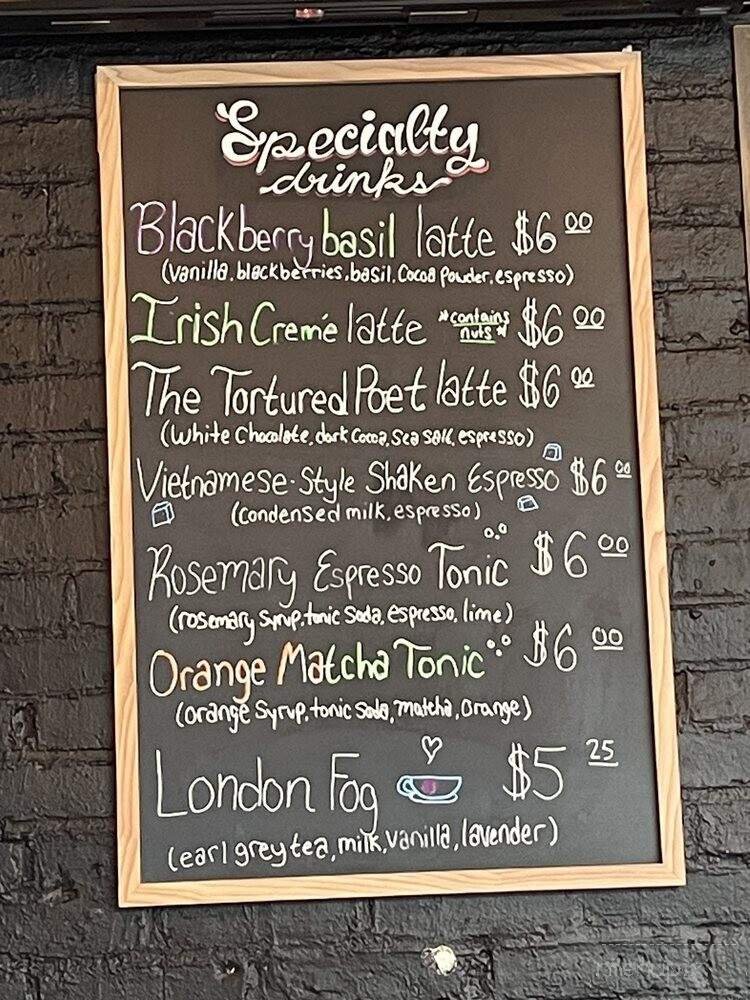 Specialty
drinks
Blackberry basil latte $6 00
(Vanilla, blackberries, basil, Cocoa Powder, espresso)
Irish Cremé latte *contains nuts* $6 00
The Tortured Poet latte $6 00
(White Chocolate, dark Cocoa, Sea Salt, espresso)
Vietnamese-Style Shaken Espresso $6 00
(Condensed milk, espresso)
Rosemary Espresso Tonic $6 00
(rosemary syrup, tonic Soda, espresso, lime)
Orange Matcha Tonic $6 00
(Orange Syrup, tonic Soda, matcha, Orange)
London Fog $5 25
(earl grey tea, milk, vanilla, lavender)